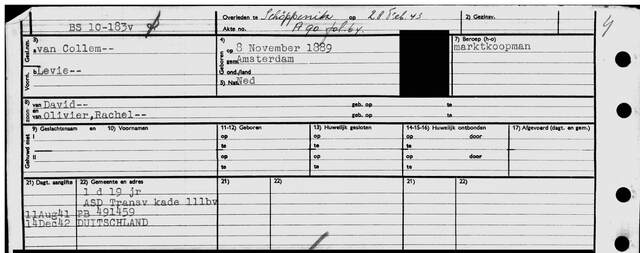 BS 10-183v Overleden te Schöppenitz op 28 Feb 43 2) Gezinsv.
Akte no. A 90 fol. 64
3) 4) 7) Beroep (h-o)
Gesl.nm. van Collem-- Geboren op 8 November 1889 marktkoopman
gem. Amsterdam
Voorn. Levie-- ond./land
5) Nat. Ned
zoon van David-- geb. op te
en van Olivier, Rachel-- geb. op te
9) Geslachtsnaam en 10) Voornamen 11-12) Geboren 13) Huwelijk gesloten 14-15-16) Huwelijk ontbonden 17) Afgevoerd (dagt. en gem.)
Gehuwd met I op op op door
te te te
II op op op door
te te te
21) Dagt. aangifte 22) Gemeente en adres 21) 22) 21) 22)
1 d 19 jr
ASD Transv kade 111bv
11Aug41 PB 491459
14Dec42 DUITSCHLAND